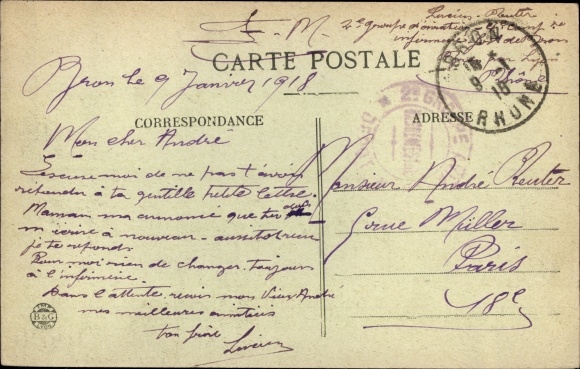 F. M.
Lucien Reuter
2e groupe d'aviation
infirmerie de Bron
Rhône
CARTE POSTALE
BRON
9 -1
18
RHONE
2e G
Bron le 9 Janvier 1918
CORRESPONDANCE
ADRESSE
Mon cher André
Excuse moi de ne pas t'avoir
répondu à ta gentille petite lettre.
Maman m'annonce que tu dois
m'écrire à nouveau - aussitôt reçu
je te réponds.
Pour moi rien de changer, toujours
à l'infirmerie
Dans l'attente, reçois mon Vieux André
mes meilleures amitiés
ton frère
Lucien
Monsieur André Reuter
6 rue Müller
Paris
18e
IMP
B&G
LYON